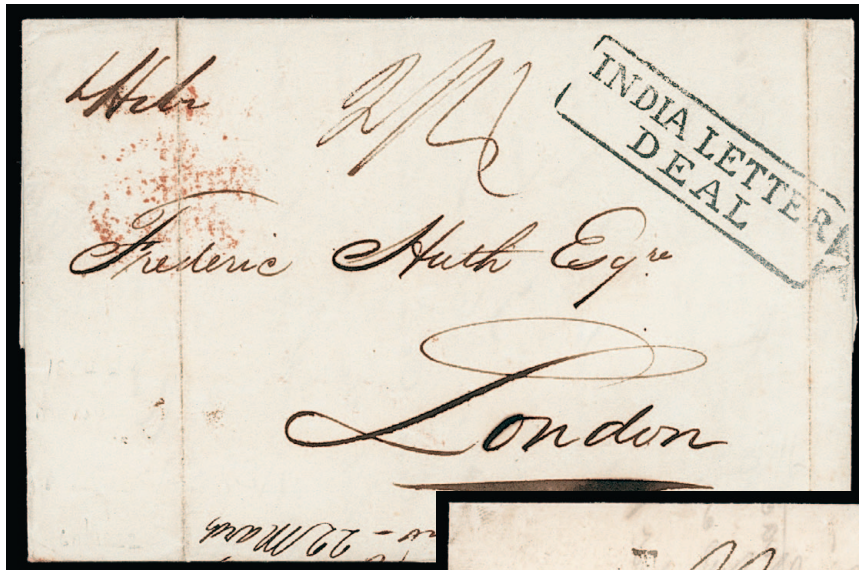 2/4
INDIA LETTER
DEAL
Frederic Huth Esqre
London
22 March